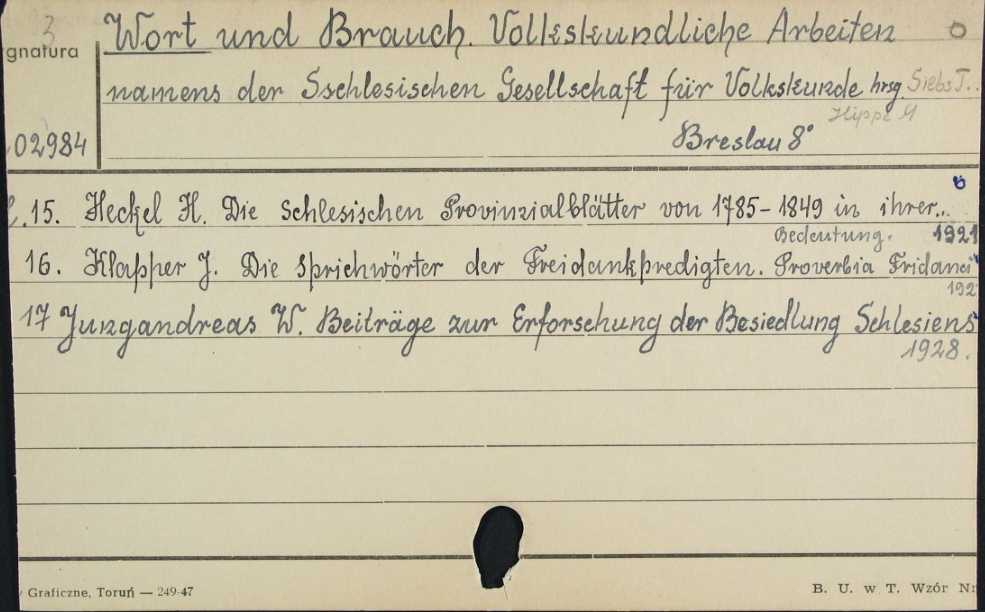 3
gnatura
Wort und Brauch. Volkskundliche Arbeiten
namens der Sschlesischen Gesellschaft für Volkskunde hrsg. Siebs T..
Hippe M
02984
Breslau 8°
15. Heckel H. Die Schlesischen Provinzialblätter von 1785-1849 in ihrer...
Bedeutung. 1921
16. Klapper J. Die Sprichwörter der Freidankpredigten. Proverbia Fridanci
192
17 Jungandreas W. Beiträge zur Erforschung der Besiedlung Schlesiens
1928.
Graficzne, Toruń — 249-47
B. U. w T. Wzór Nr